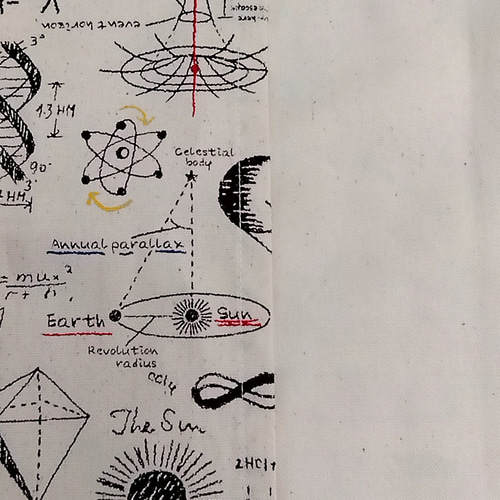 event horizon
3°
1.3 HM
90°
3°
HM
Celestial
body
Annual parallax
Earth
Sun
Revolution
radius
CCl4
The Sun
2HCl+